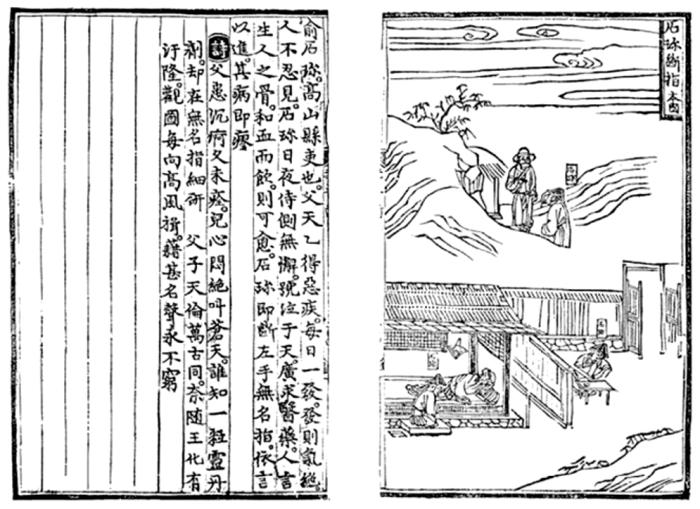 石珍斷指 本國
俞石珍。高山縣吏也。父天乙得惡疾。每日一發。發則氣絶。
人不忍見。石珍日夜侍側無懈。號泣于天。廣求醫藥。人言
生人之骨。和血而飮。則可愈。石珍即斷左手無名指。依言
以進。其病即瘳
詩 父患沉痾久未痊。兒心悶絶叫蒼天。誰知一粒靈丹
劑。却在無名指細硏 父子天倫萬古同。奈随王化有
汙隆。觀國每向高風揖。藉甚名聲永不窮